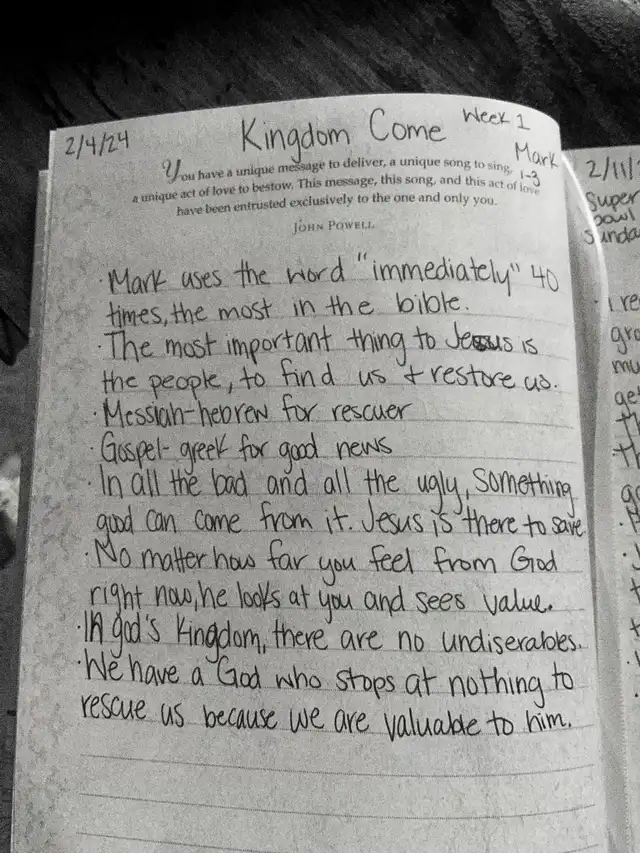 2/4/24 Kingdom Come Week 1
Mark
1-3
You have a unique message to deliver, a unique song to sing,
a unique act of love to bestow. This message, this song, and this act of love
have been entrusted exclusively to the one and only you.
John Powell
· Mark uses the word "immediately" 40
times, the most in the bible.
· The most important thing to Jesus is
the people, to find us + restore us.
· Messiah- hebrew for rescuer
· Gospel- greek for good news
· In all the bad and all the ugly, something
good can come from it. Jesus is there to save
· No matter how far you feel from God
right now, he looks at you and sees value.
· In god's Kingdom, there are no undiserables.
· We have a God who stops at nothing to
rescue us because we are valuable to him.
2/11/
Super
bowl
Sunda
· I re
gro
mu
ge
th
th
go